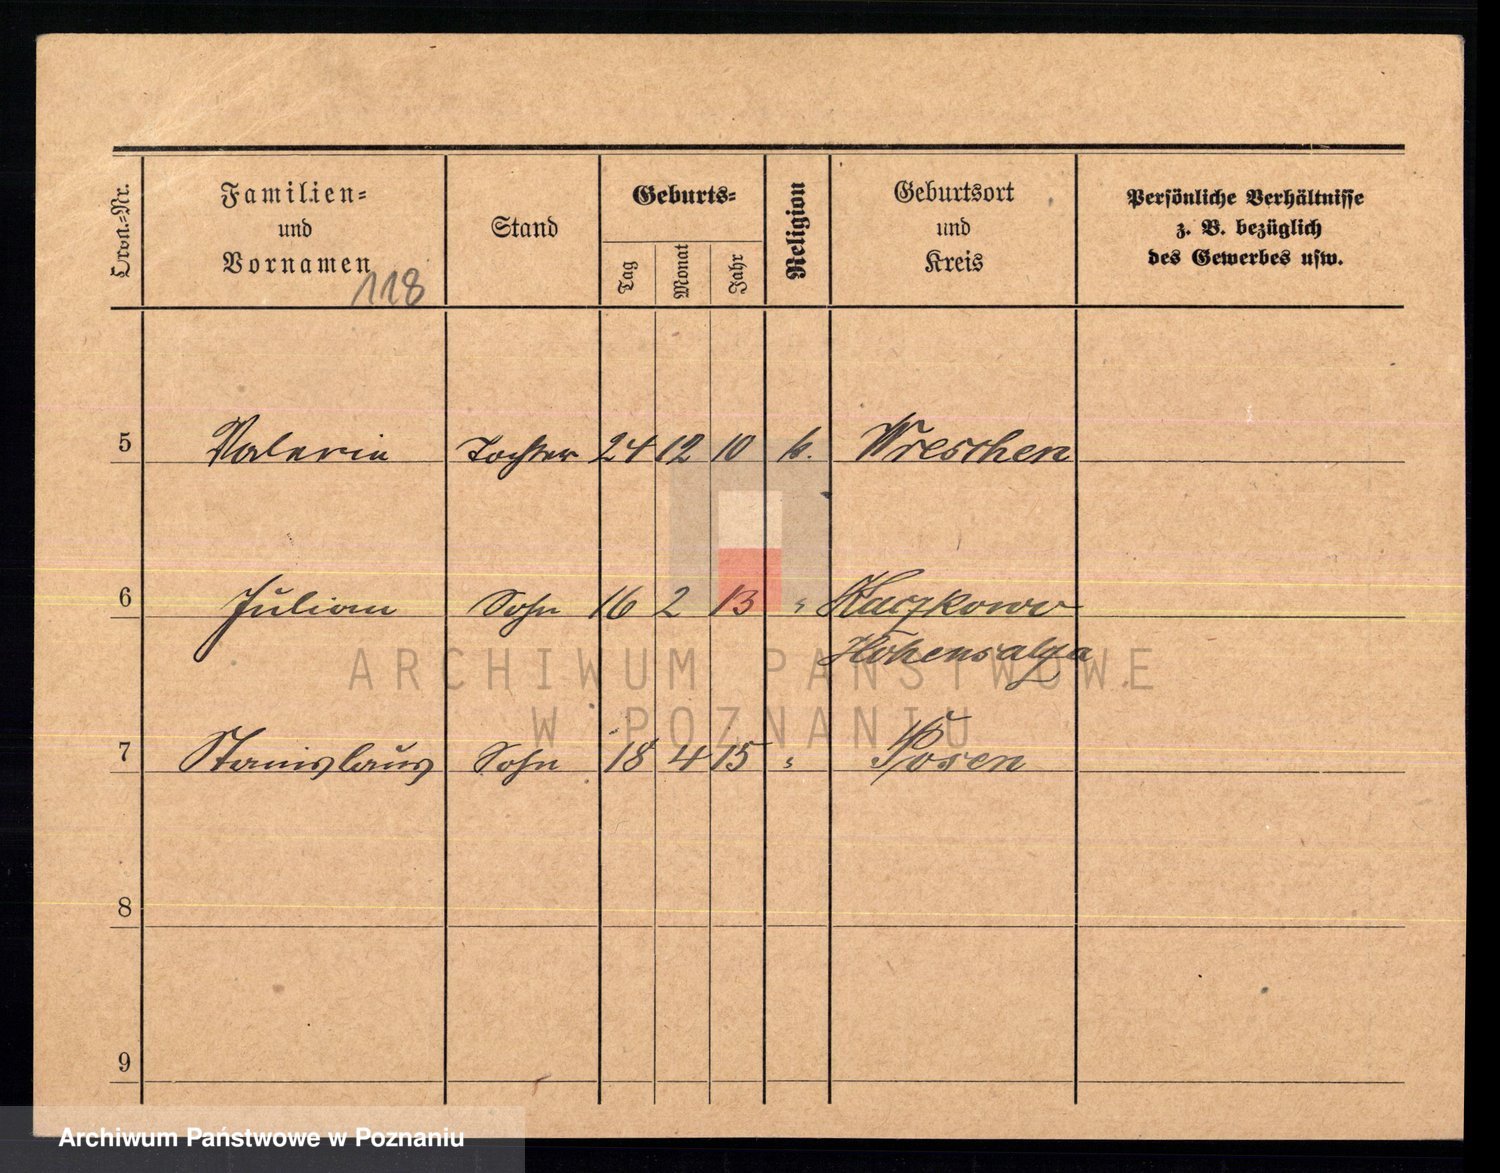 Ordn.-Nr. Familien- und Vornamen Stand Geburts- Tag Monat Jahr Religion Geburtsort und Kreis Persönliche Verhältnisse z. B. bezüglich des Gewerbes usw.
118
5 Valerie Tochter 24 12 10 k. Wreschen
6 Julian Sohn 16 2 13 " Kaczkowo
Hohensalza
ARCHIWUM PAŃSTWOWE
W POZNANIU
7 Stanislaus Sohn 18 4 15 " Posen
8
9
Archiwum Państwowe w Poznaniu